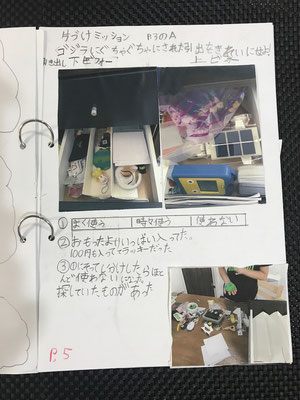 片づけミッション P3のA
ゴジラにぐちゃぐちゃにされた引出をきれいに仕
引き出し 下 上
① よく使う 時々使う 使わない
② おもったよりいっぱい入ってた。
100円も入っててラッキーだった
③ ①にそって分けしたらほと
んど使わないになった
探していたものがあった
P.5